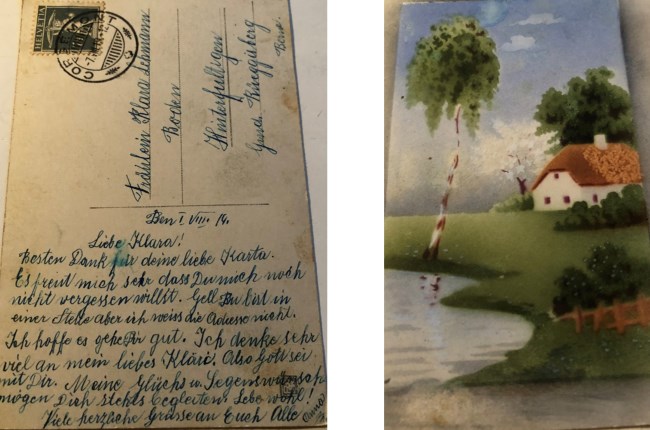 HELVETIA
CORGÉMONT
Fräulein Klara Lehmann
Boden
Hinterfultigen
Gmd. Rüeggisberg
Bern
Den I VIII. 14.
Liebe Klara!
Besten Dank für deine liebe Karta.
Es freut mich sehr dass Du mich noch
nicht vergessen willst. Gell Du bist in
einer Stelle aber ich weiss die Adresse nicht.
Ich hoffe es gehe Dir gut. Ich denke sehr
viel an mein liebes Kläri. Also Gott sei
mit Dir. Meine Glücks u. Segenswünsch
mögen Dich stehts begleiten. Lebe wohl!
Viele herzliche Grüsse an Euch Alle